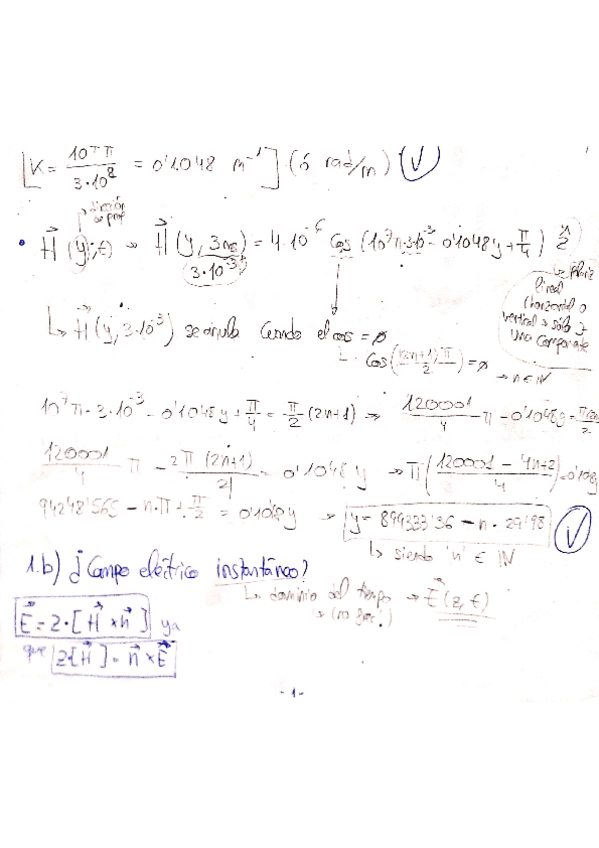 K = 10⁷π / 3·10⁸ = 0'1048 m⁻¹] (ó rad/m) (√)
dirección de prop
• H⃗(y;t) → H⃗(y, 3ms) = 4·10⁻⁶ cos(10⁷π·3·10⁻³ - 0'1048y + π/4) ẑ
3·10⁻³
lineal
(horizontal o
vertical → sólo
una componente
↳ H⃗(y, 3·10⁻³) se anula cuando el cos = ø
cos((2n+1)π/2) = ø → n ∈ N
10⁷π·3·10⁻³ - 0'1048y + π/4 = π/2 (2n+1) ⇒ 120001/4 π - 0'1048y =
120001/4 π - 2π(2n+1)/2 = 0'1048 y → π(120001 - 4n+2 / 4) = 0'108y
94248'565 - n·π + π/2 = 0'108y → y = 899333'36 - n·29'98 (√)
↳ siendo 'n' ∈ N
1.b) ¿Campo eléctrico instantáneo?
↳ dominio del tiempo → E⃗(z,t)
E⃗ = z·[H⃗ × n⃗] ya
que z[H⃗] = n⃗ × E⃗
- 1 -